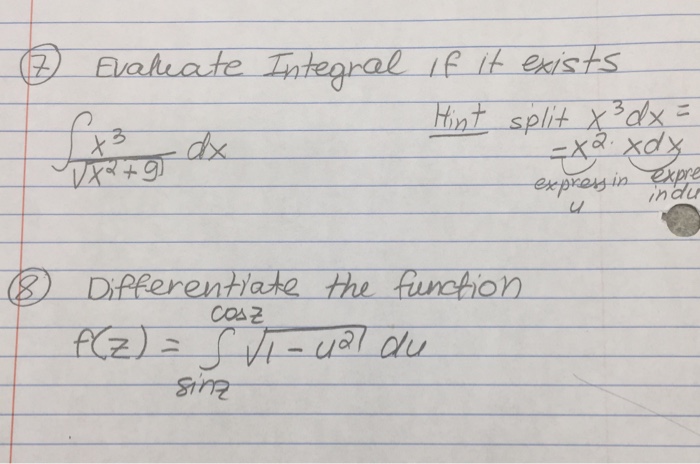 7 Evaluate Integral if it exists
∫ x³/√(x²+9) dx
Hint split x³dx =
= x²· xdx
express in u
expre in du
8 Differentiate the function
f(z) = ∫ sinz cosz √(1-u²) du